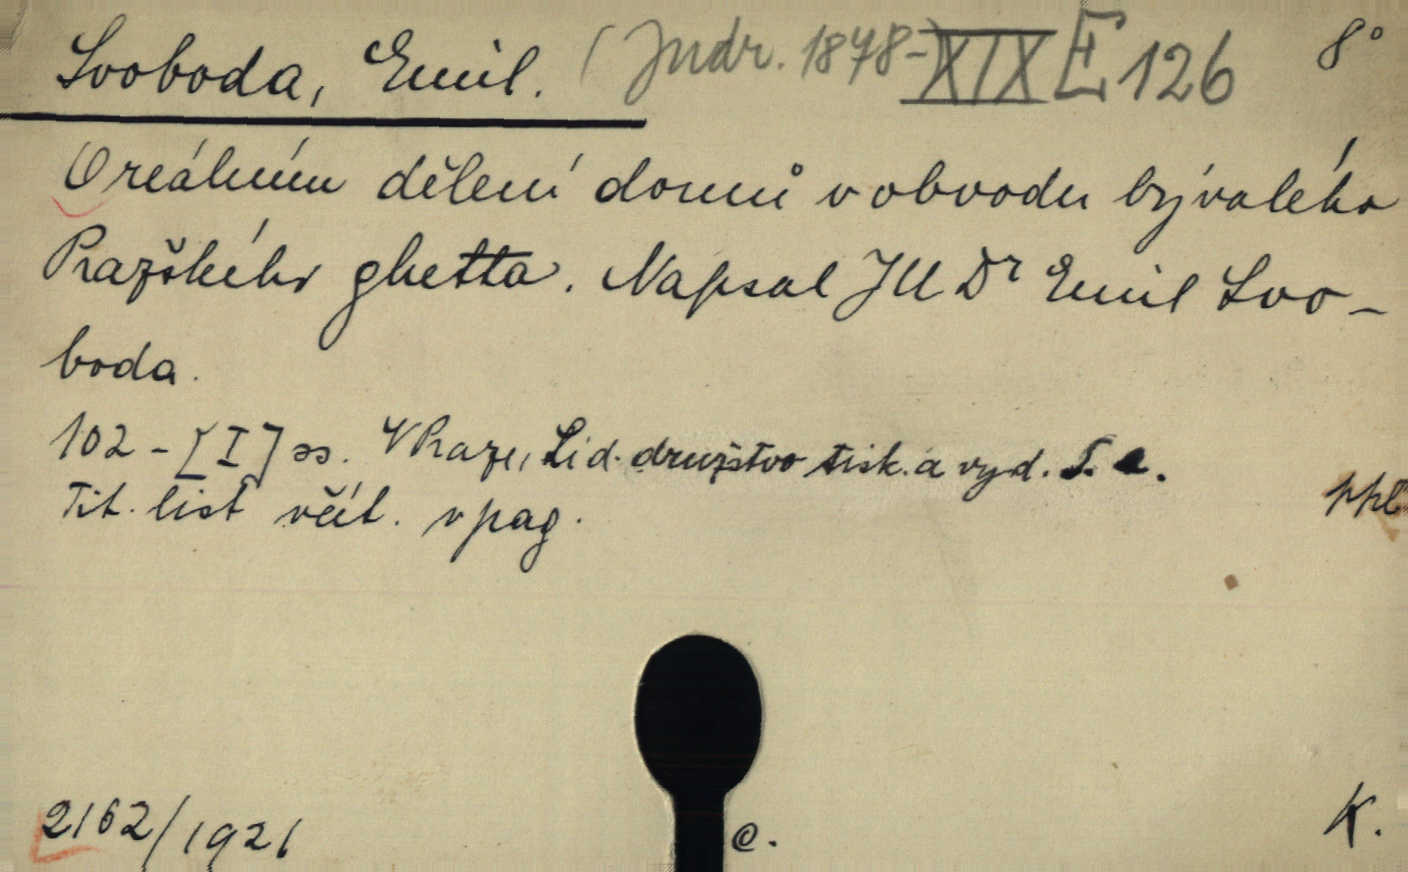 Svoboda, Emil. (Judr. 1878-) XIX E 126 8°
O reálním dělení domů v obvodu bývalého
Pražského ghetta. Napsal JU Dr Emil Svo-
boda.
102 - [I] ss. V Praze, Lid. družstvo tisk. a vyd. S. a.
Tit. list včít. v pag.
ppl
2162/1921
e.
K.